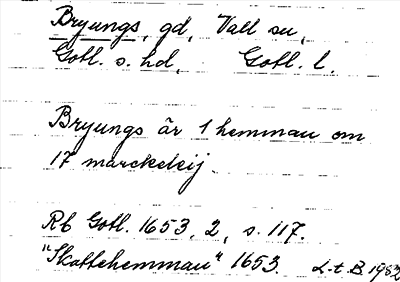 Bryungs, gd, Vall sn,
Gotl. s. hd, Gotl. l.
Bryungs är 1 hemman om
17 marckeleij
Rb Gotl. 1653, 2, s. 117.
"Skattehemman" 1653. L-t. B. 1982